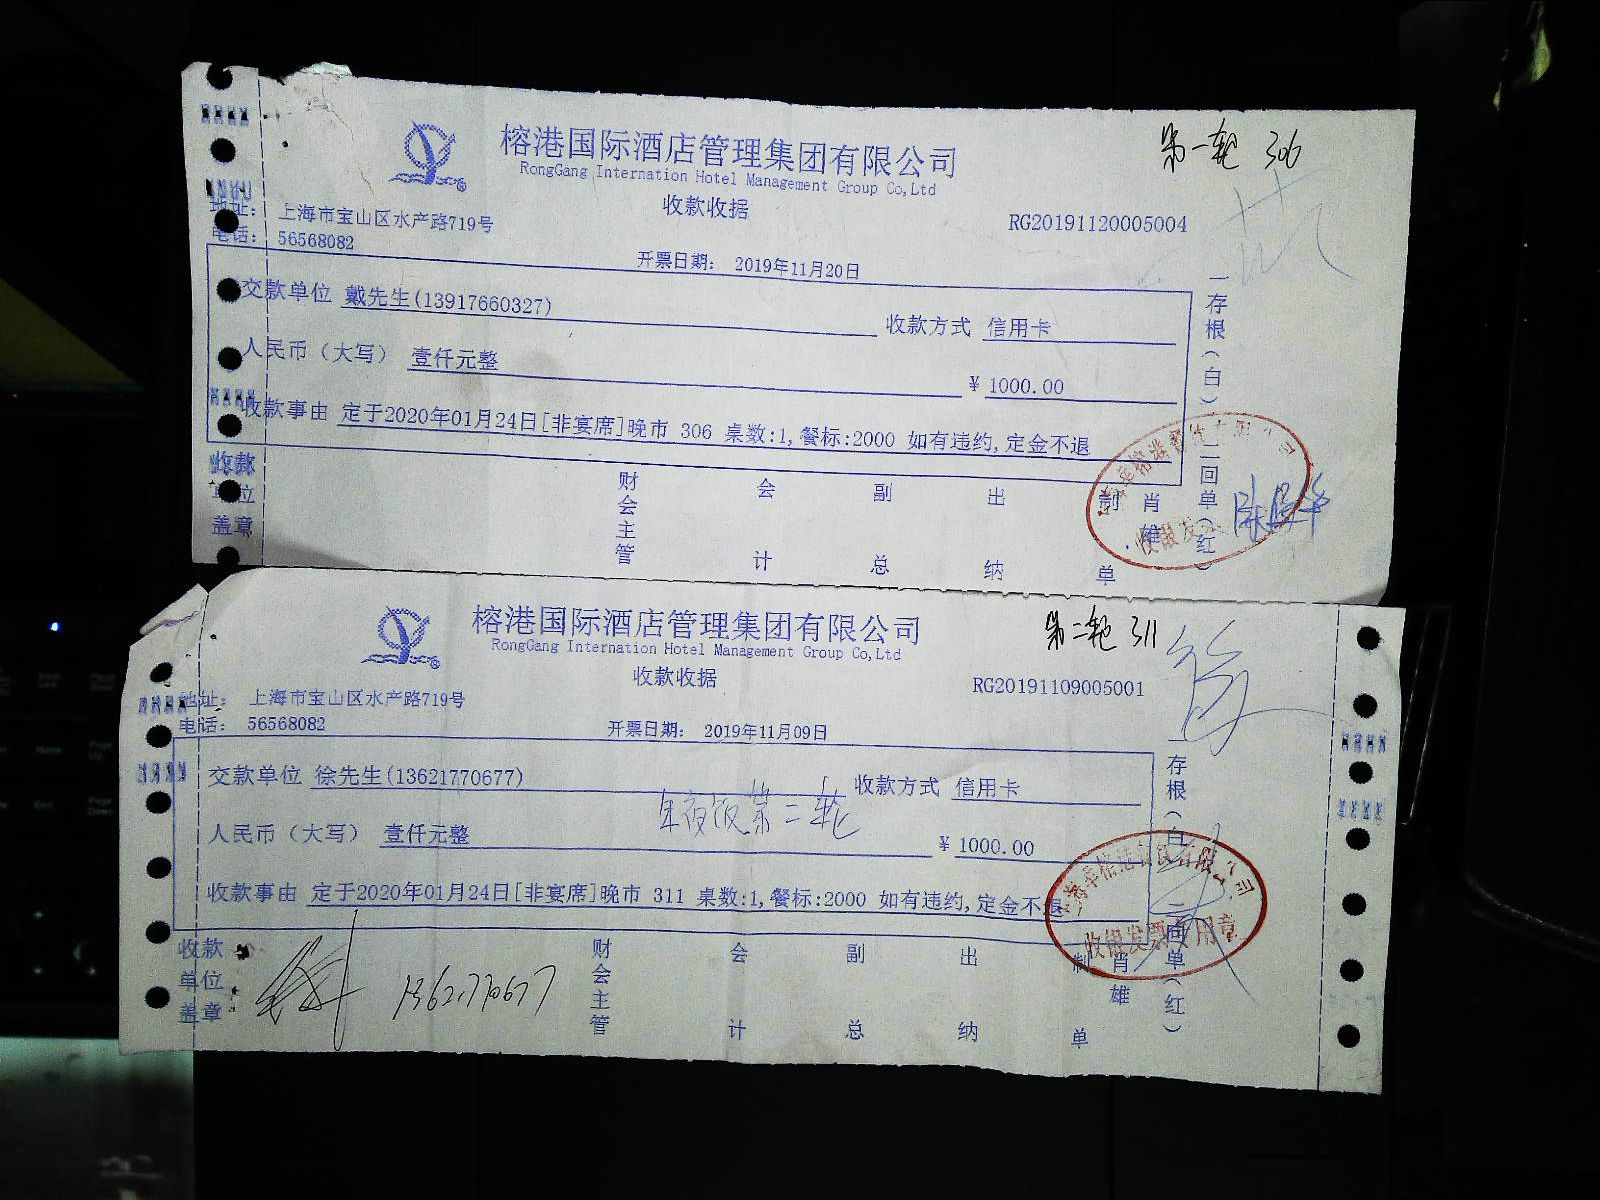 榕港国际酒店管理集团有限公司
第一轮 306
RongGang Internation Hotel Management Group Co,Ltd
收款收据
地址： 上海市宝山区水产路719号
RG20191120005004
电话： 56568082
开票日期： 2019年11月20日
交款单位 戴先生(13917660327)
收款方式 信用卡
人民币（大写） 壹仟元整
¥ 1000.00
收款事由 定于2020年01月24日[非宴席]晚市 306 桌数:1,餐标:2000 如有违约,定金不退
一存根(白) 二回单(红)
收款单位盖章
财会主管 会计 副总 出纳 制单 肖雄
榕港国际酒店管理集团有限公司
第二轮 311
RongGang Internation Hotel Management Group Co,Ltd
收款收据
地址： 上海市宝山区水产路719号
RG20191109005001
电话： 56568082
开票日期： 2019年11月09日
交款单位 徐先生(13621770677)
收款方式 信用卡
年夜饭第二轮
人民币（大写） 壹仟元整
¥ 1000.00
收款事由 定于2020年01月24日[非宴席]晚市 311 桌数:1,餐标:2000 如有违约,定金不退
一存根(白) 二回单(红)
收银发票专用章
收款单位盖章
13621770677
财会主管 会计 副总 出纳 制单 肖雄